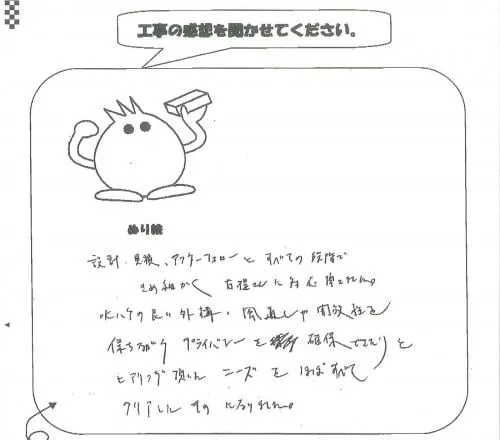 工事の感想を聞かせてください。
ぬり絵
設計、見積、アフターフォローとすべての段階で
きめ細かく 対応頂きました。
水ハケの良い外構・風通しや開放性を
保ちながら プライバシーを 確保できたりと
ヒアリング頂いた ニーズを ほぼすべて
クリアした ものになりました。